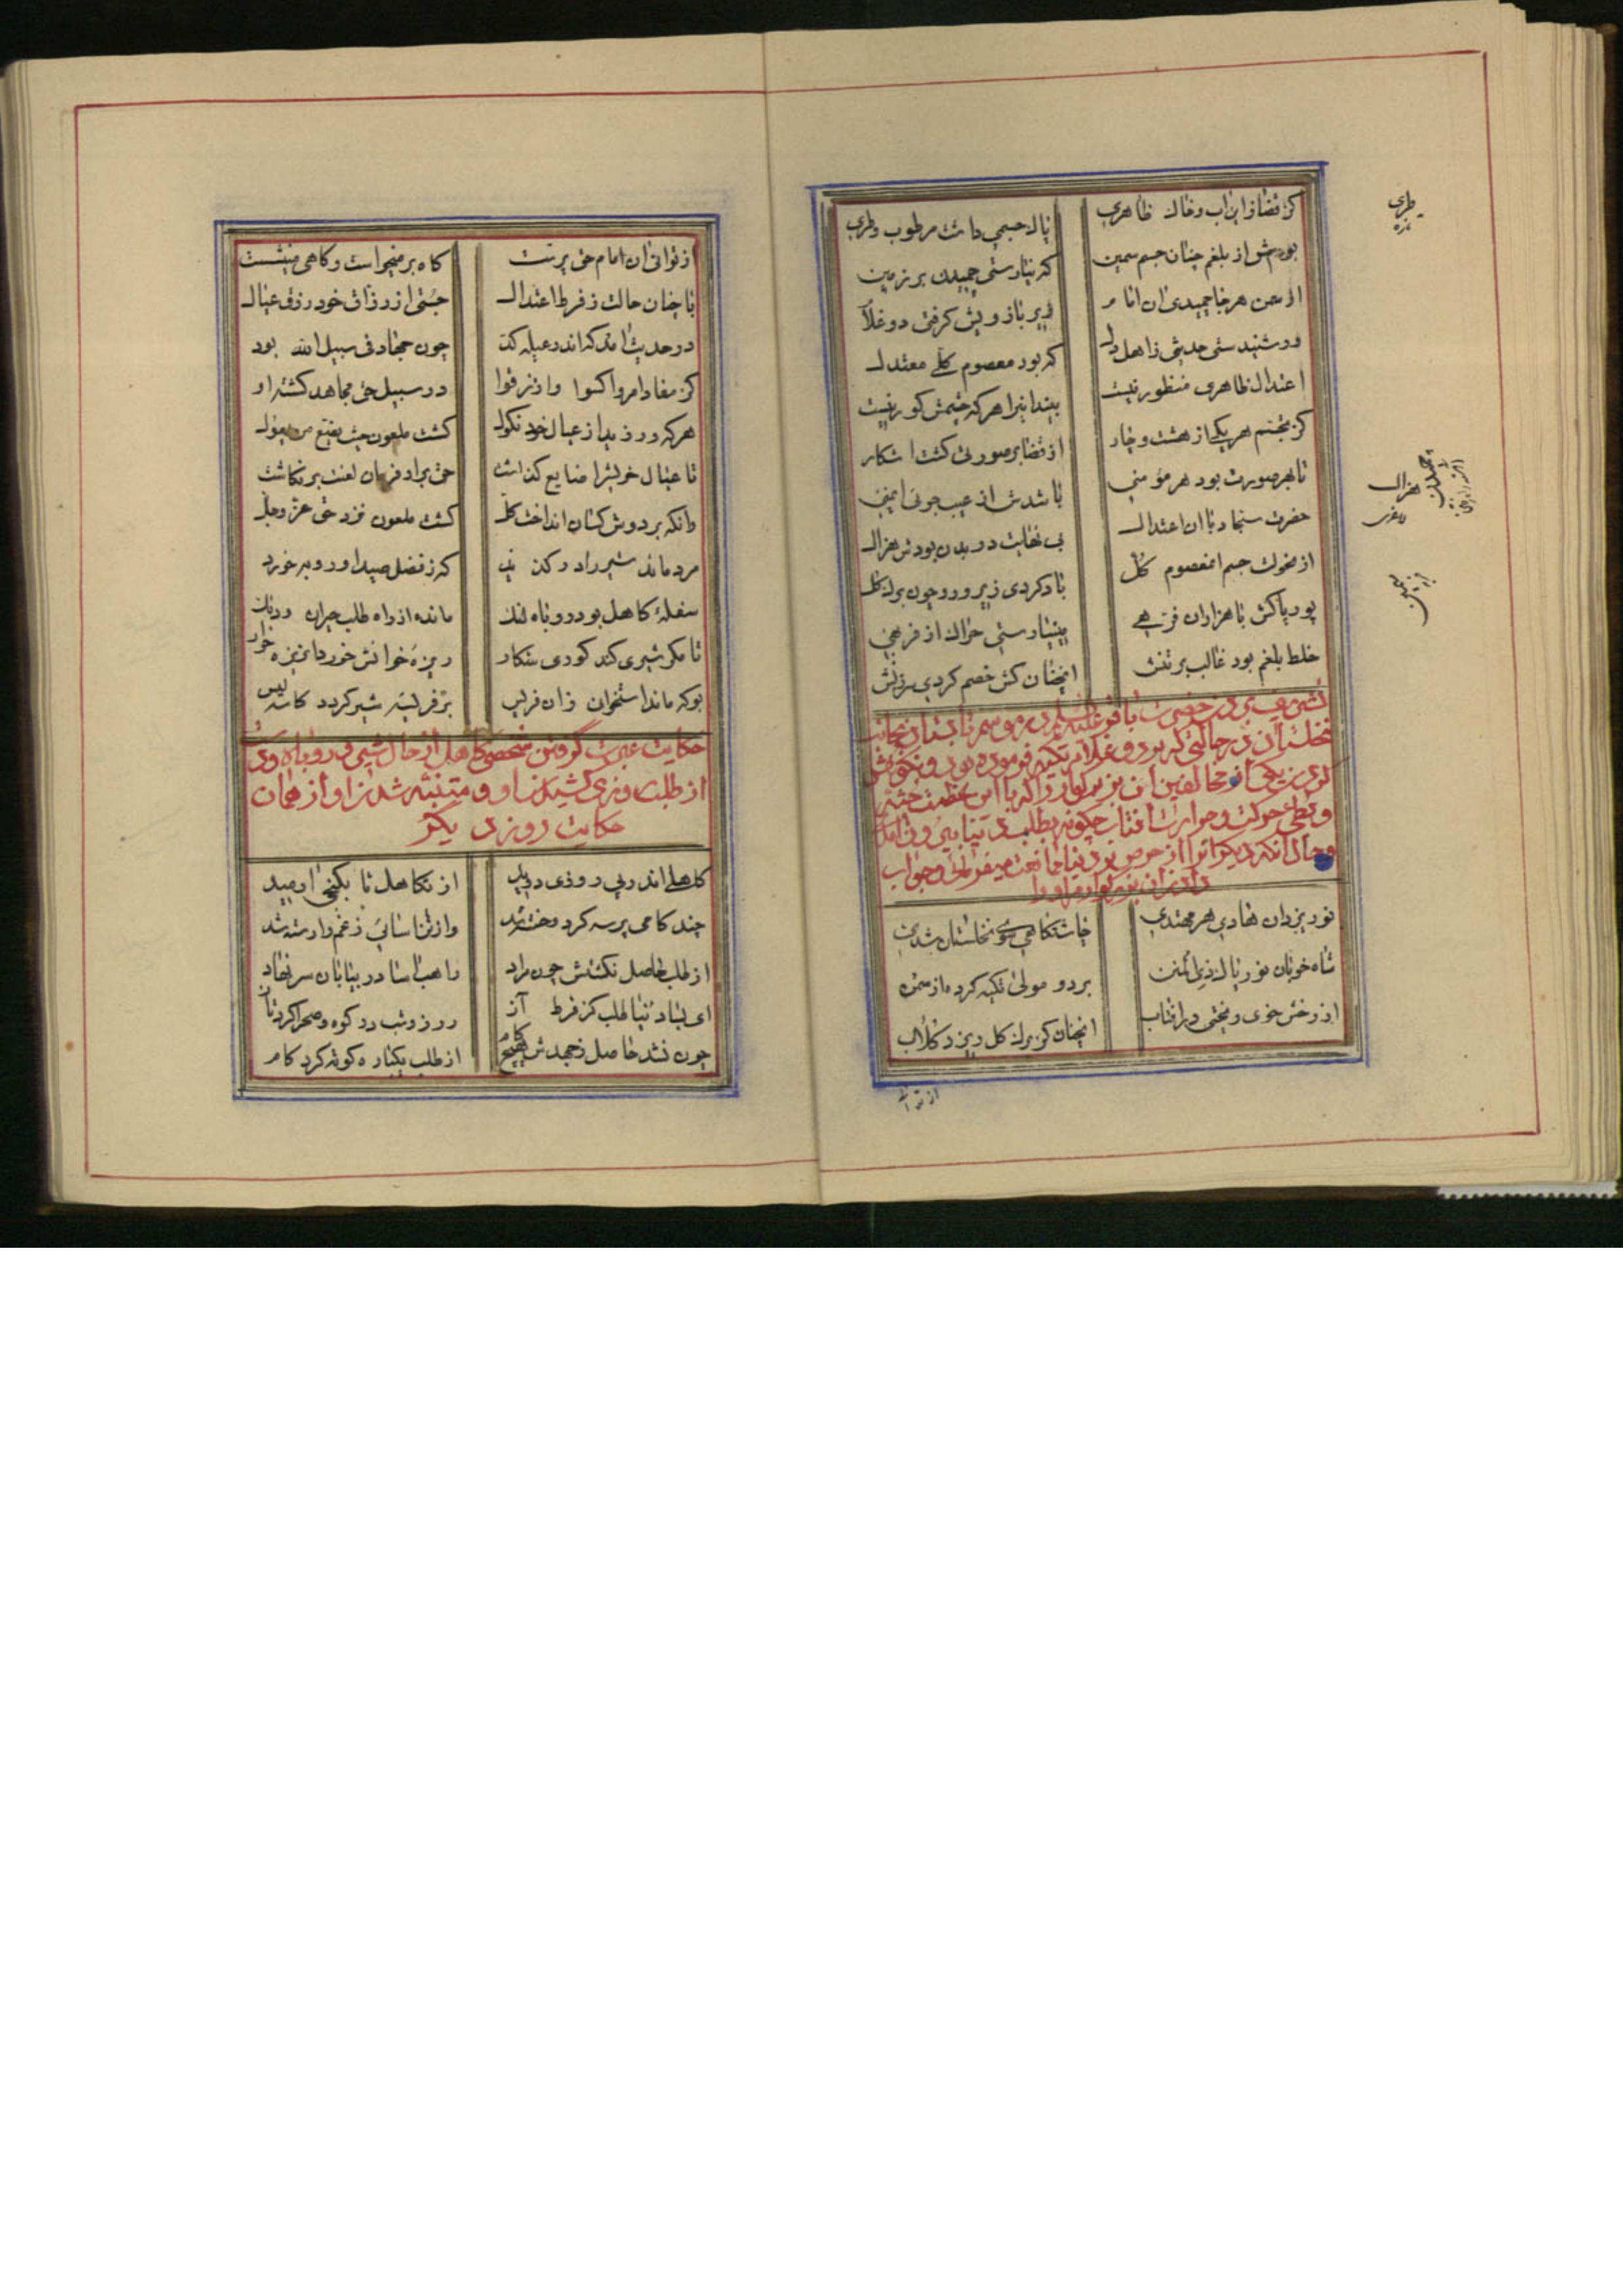 کز قضا زاین اب وخاک ظاهری پاک جسمی داشت مرطوب وطری
بودش از بلغم چنان جسم سمین که نیارستی چمیدن بر زمین
هر جا چمیدی ان امام زیر بازویش کرفتی دو غلام
ور شنیدستی حدیثی ز اهل دل که بود معصوم کلی معتدل
اعتدال ظاهری منظور نیست بیند اینرا هر که چشمش کور نیست
هر یکی از هشت وچار از قضا بر صورتی کشت اشکار
تا بهر صورت بود هر مؤمنی باشدش از عیب جوئی ایمنی
حضرت سجاد با ان اعتدال بی نهایت در بدن بودش هزال
از نحولت جسم ان معصوم کل باد کردی زیر ورو چون برک کل
پور پاکش با هزاران فرهی می‌نیارستی حراک از فربهی
خلط بلغم بود غالب بر تنش انچنان کش خصم کردی سرزنش
حضرت باقر علیه السلم در موسم تابستان بجانب
نخلستان در حالتی که بر دو غلام تکیه فرموده بود ونکوهش
کردن یکی از مخالفین ان بزرکوار را که با این عظمت جثه
حرکت وحرارت افتاب چکونه بطلب دنیا بیرون امده
وحال انکه دیکرانرا از حرص بر دنیا ممانعت میفرمائی وجواب
دادن ان بزرکوار مر او را
نور یزدان هادی هر مهتدی چاشتکاهی سوی نخلستان شدی
شاه خوبان نور پاک ذی المنن بر دو مولی تکیه کرده از سمن
از رخش خوی ریختی در افتاب انچنان کز برک کل ریزد کلاب
از توا
طری
تازه
هزال
لاغری
از توانی ان امام حق پرست کاه بر میخواست وکاهی مینشست
با چنان حالت ز فرط اعتدال جستی از رزاق خود رزق عیال
در حدیث امد که اندر عیله کد چون جهاد فی سبیل الله بود
کز مفاد امر واکسوا وارزقوا در سبیل حق مجاهد کشته او
هر که ورزید از عیال خود نکول کشت ملعون حیث یضیع من یعول
تا عیال خویشرا ضایع کذاشت حق براد فرمان لعنت بر نکاشت
وانکه بر دوش کسان انداخت کل کشت ملعون نزد حق عز وجل
مرد ماند شیر را در کد نی که ز فضل صید او روبه خورد
سفلهٔ کاهل بود روباه لنک مانده از راه طلب حیران ودنک
تا مکر شیری کند کوری شکار ریزهٔ خوانش خورد ان ریزه خوار
بوکه ماند استخوان زان فریس بر فریسه شیر کردد کاسه لیس
حکایت عبرت کرفتن شخصی کاهل از حال شیر وروباه وی
از طلب روزی کشیدن او ومتنبه شدن او از همان
حکایت روز دیکر
کاهلی اندر پی روزی دوید از تکاهل تا بکنجی ارمید
چند کامی پرسه کرد وخسته شد وز تن اسائی ز غم وارسته شد
از طلب حاصل نکشتش چون مراد راهب اسا در بیابان سر نهاد
ای بسا دنیا طلب کز فرط آز روز وشب در کوه وصحرا کرد تاز
چون نشد حاصل ز جهدش هیچ کام از طلب یکباره کوته کرد کام